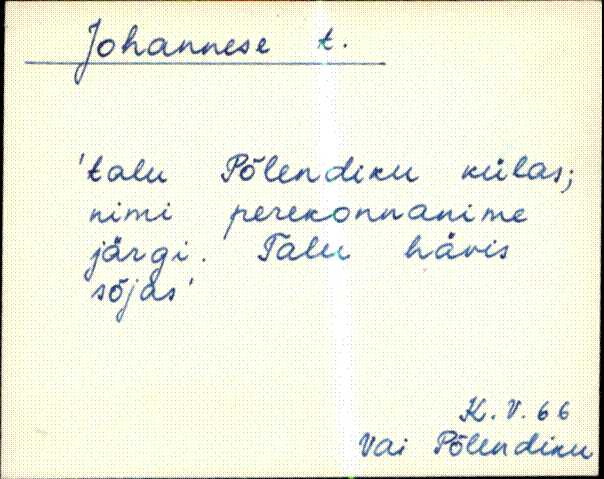 Johannese t.
'talu Põlendiku külas;
nimi perekonnanime
järgi. Talu hävis
sõjas'
K.V. 66
Vai Põlendiku